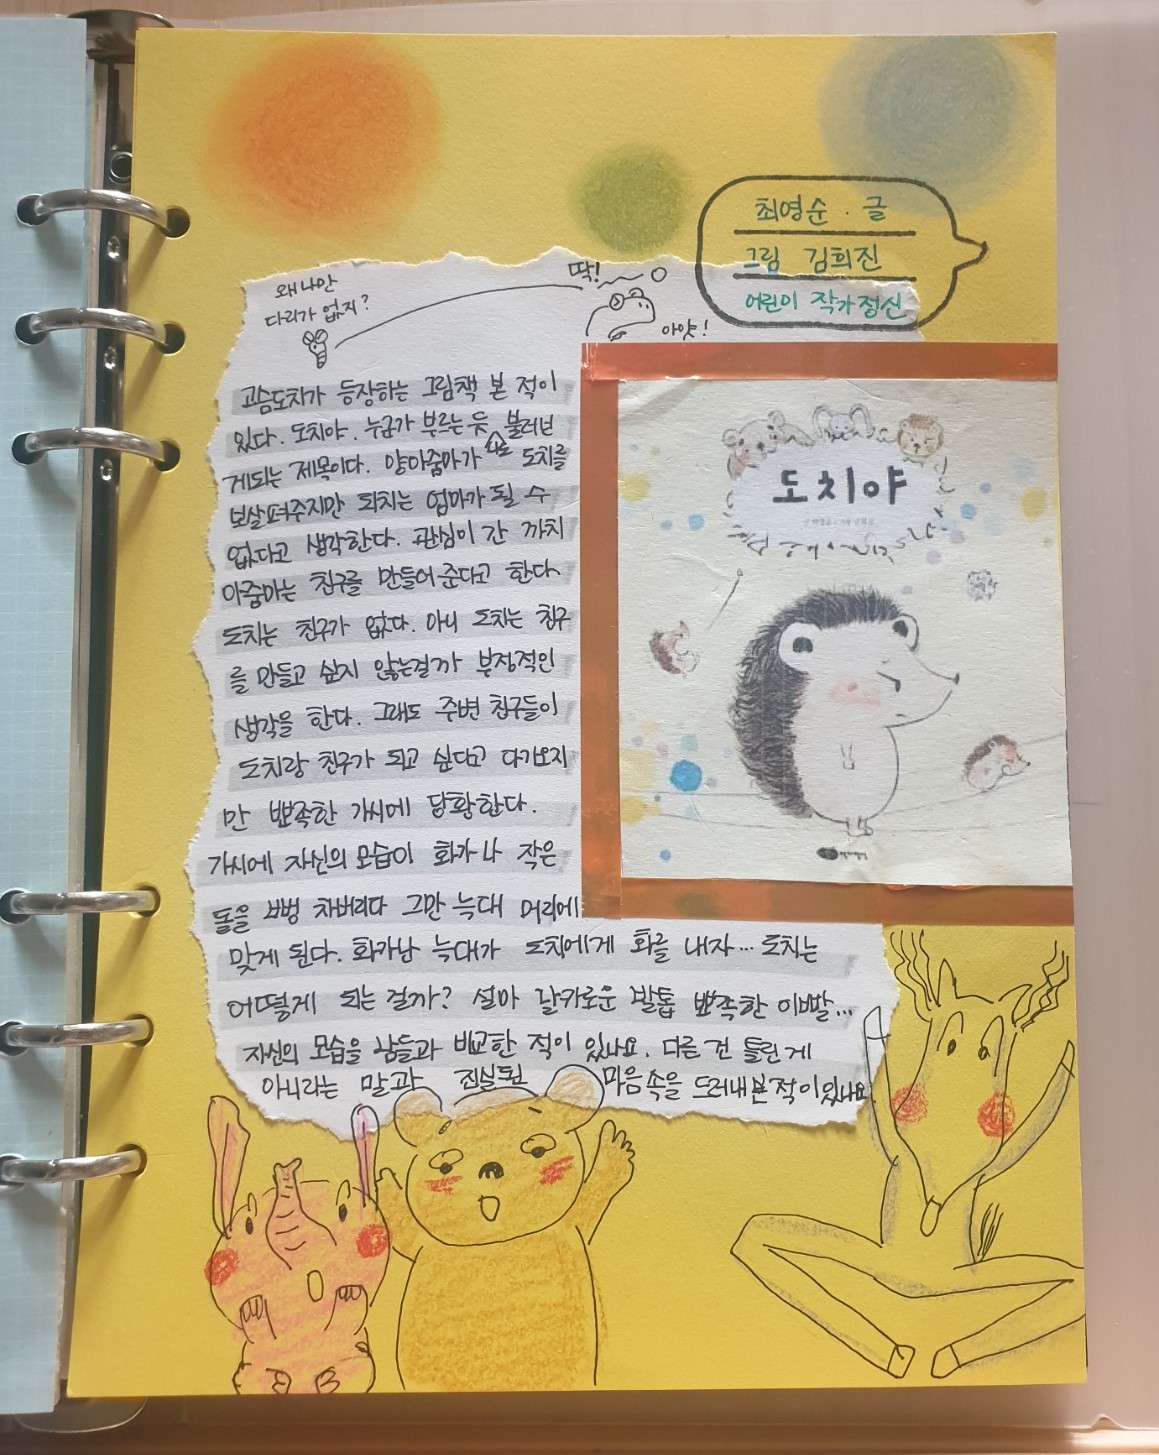 최영순 · 글
그림 김희진
어린이 작가정신
왜 나만
다리가 없지?
딱!
아얏!
도치야
고슴도치가 등장하는 그림책 본 적이
있다. 도치야. 누군가 부르는 듯 불러보
게되는 제목이다. 양아줌마가 도치를
보살펴주지만 되치는 엄마가 될 수
없다고 생각한다. 관심이 간 까치
아줌마는 친구를 만들어 준다고 한다.
도치는 친구가 없다. 아니 도치는 친구
를 만들고 싶지 않는걸까 부정적인
생각을 한다. 그래도 주변 친구들이
도치랑 친구가 되고 싶다고 다가오지
만 뾰족한 가시에 당황한다.
가시에 자신의 모습이 화가 나 작은
돌을 뻥 차버리다 그만 늑대 머리에
맞게 된다. 화가난 늑대가 도치에게 화를 내자... 도치는
어떻게 되는 걸까? 설마 날카로운 발톱 뾰족한 이빨...
자신의 모습을 남들과 비교한 적이 있나요. 다른 건 틀린 게
아니라는 말과 진실된 마음 속을 드러내 본 적이 있나요.